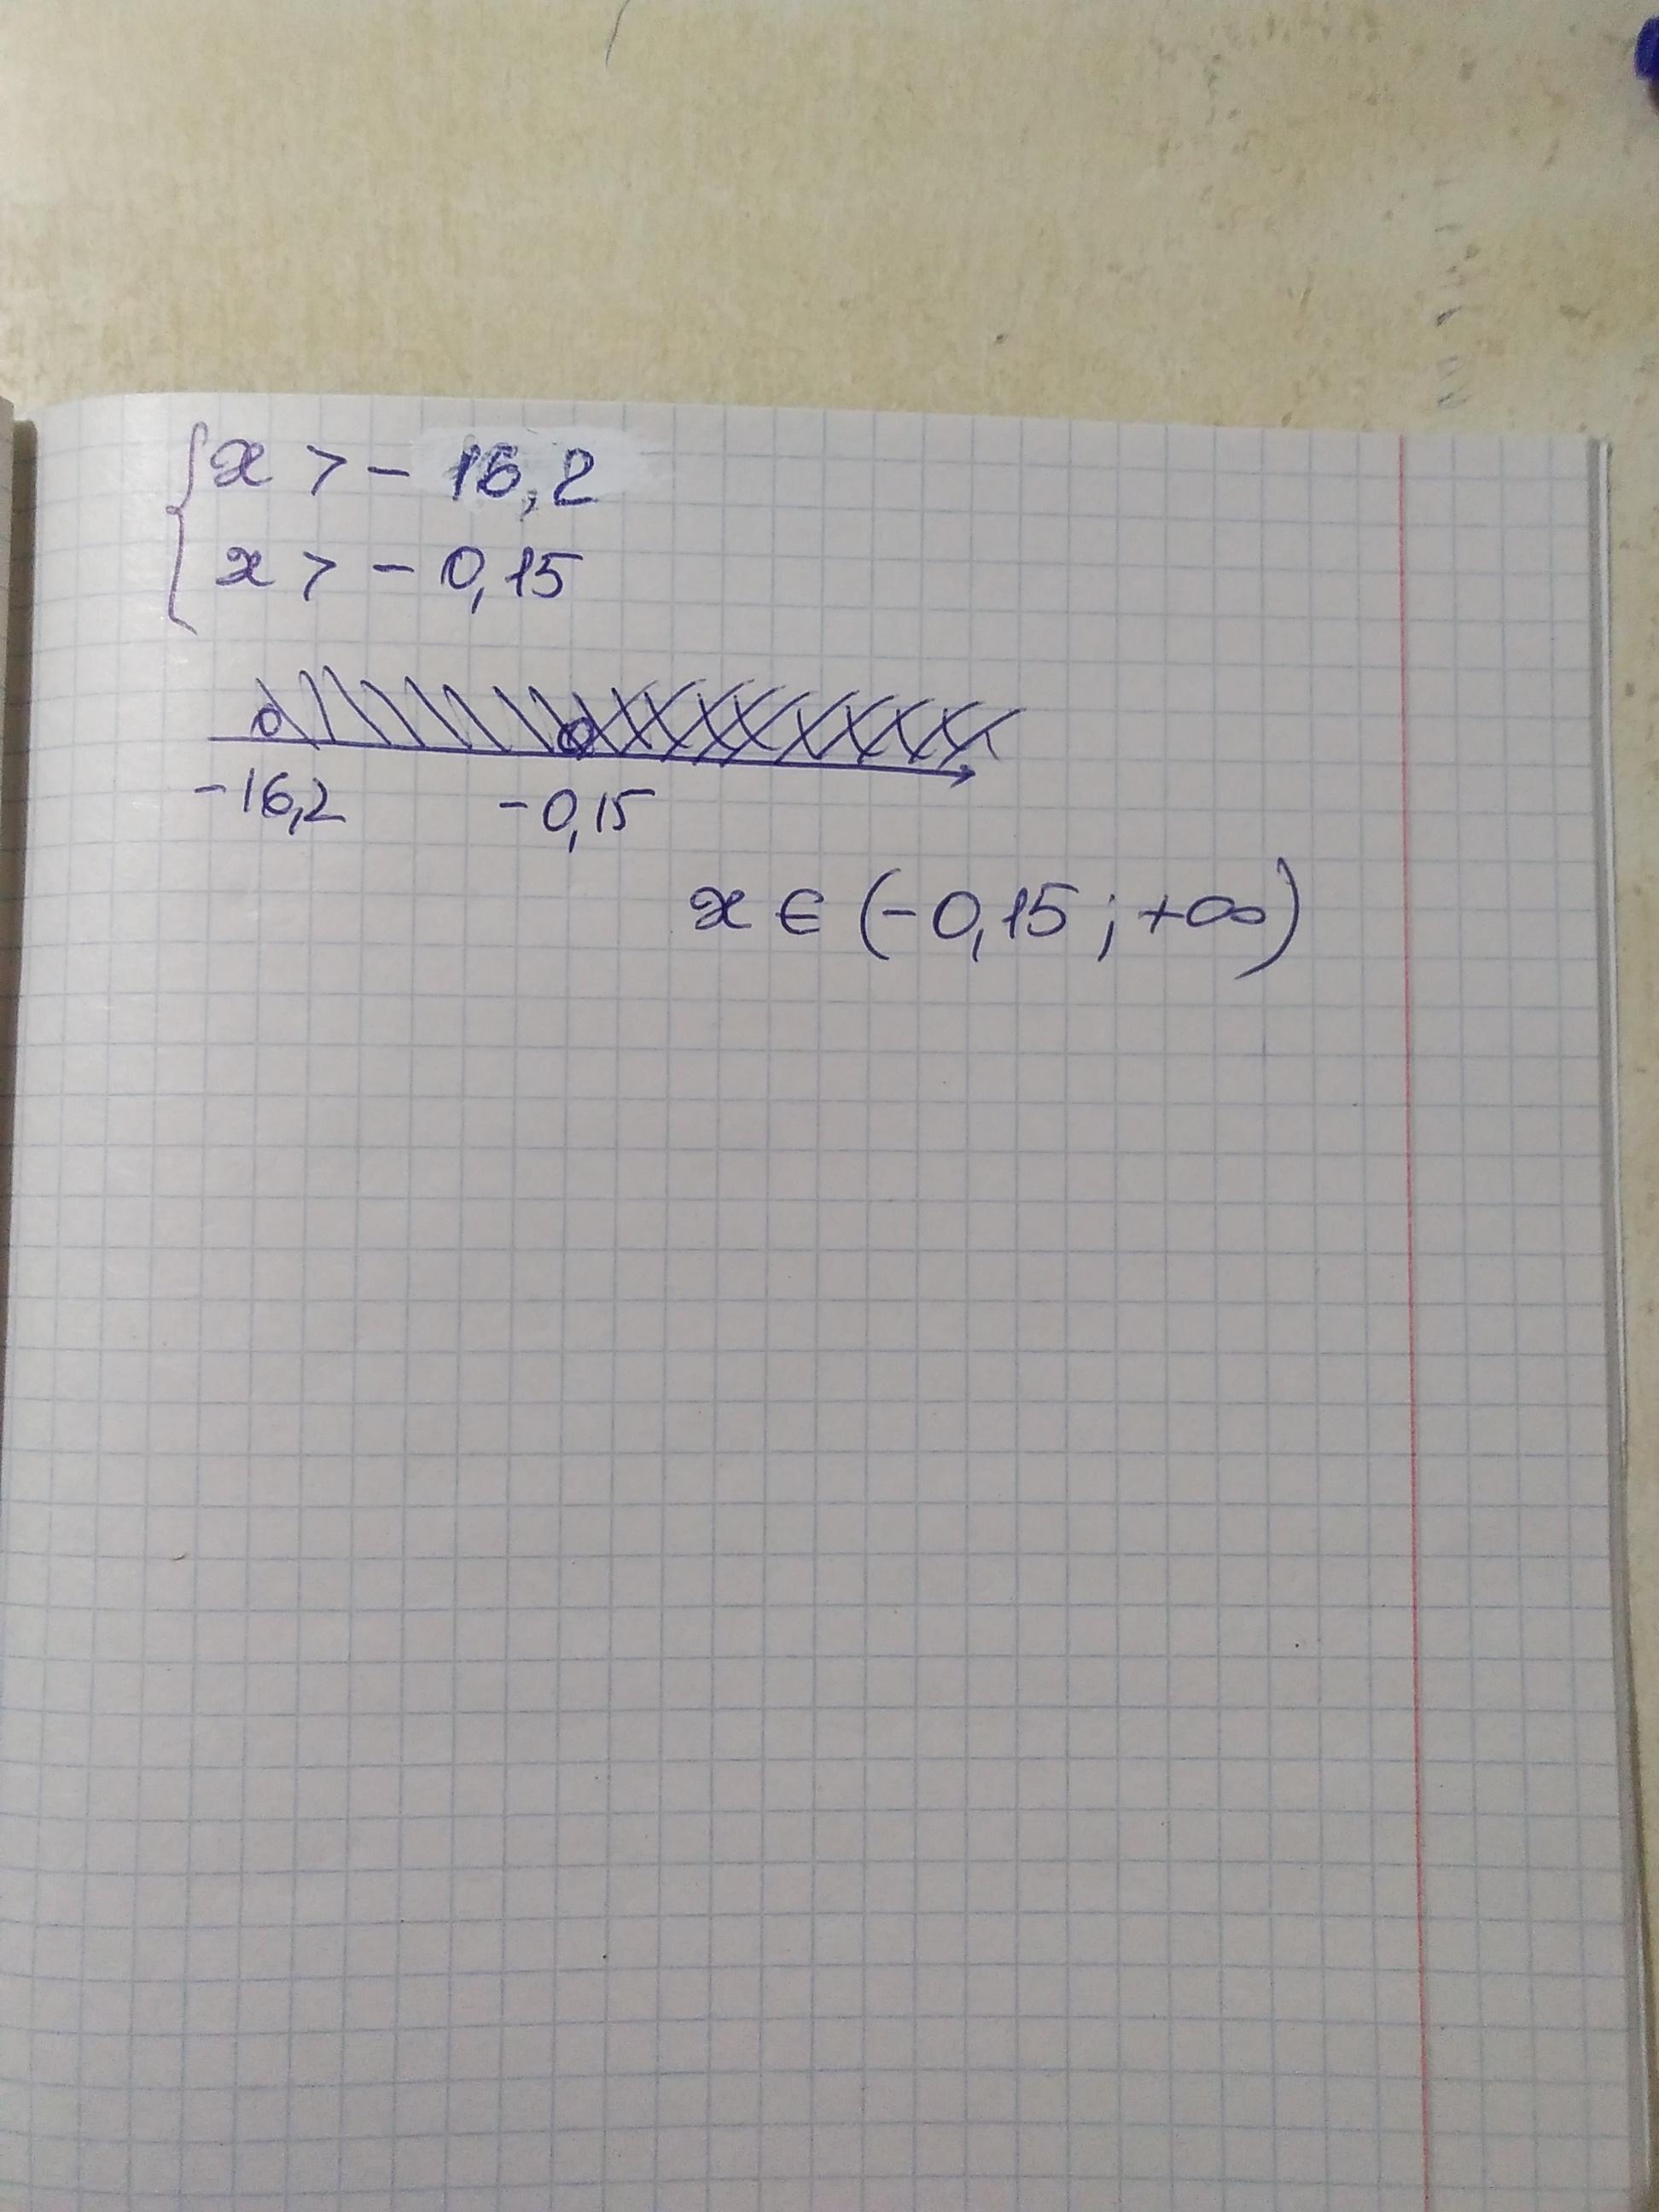 { x > - 16,2
x > - 0,15
-16,2 -0,15
x ∈ (-0,15 ; +∞)